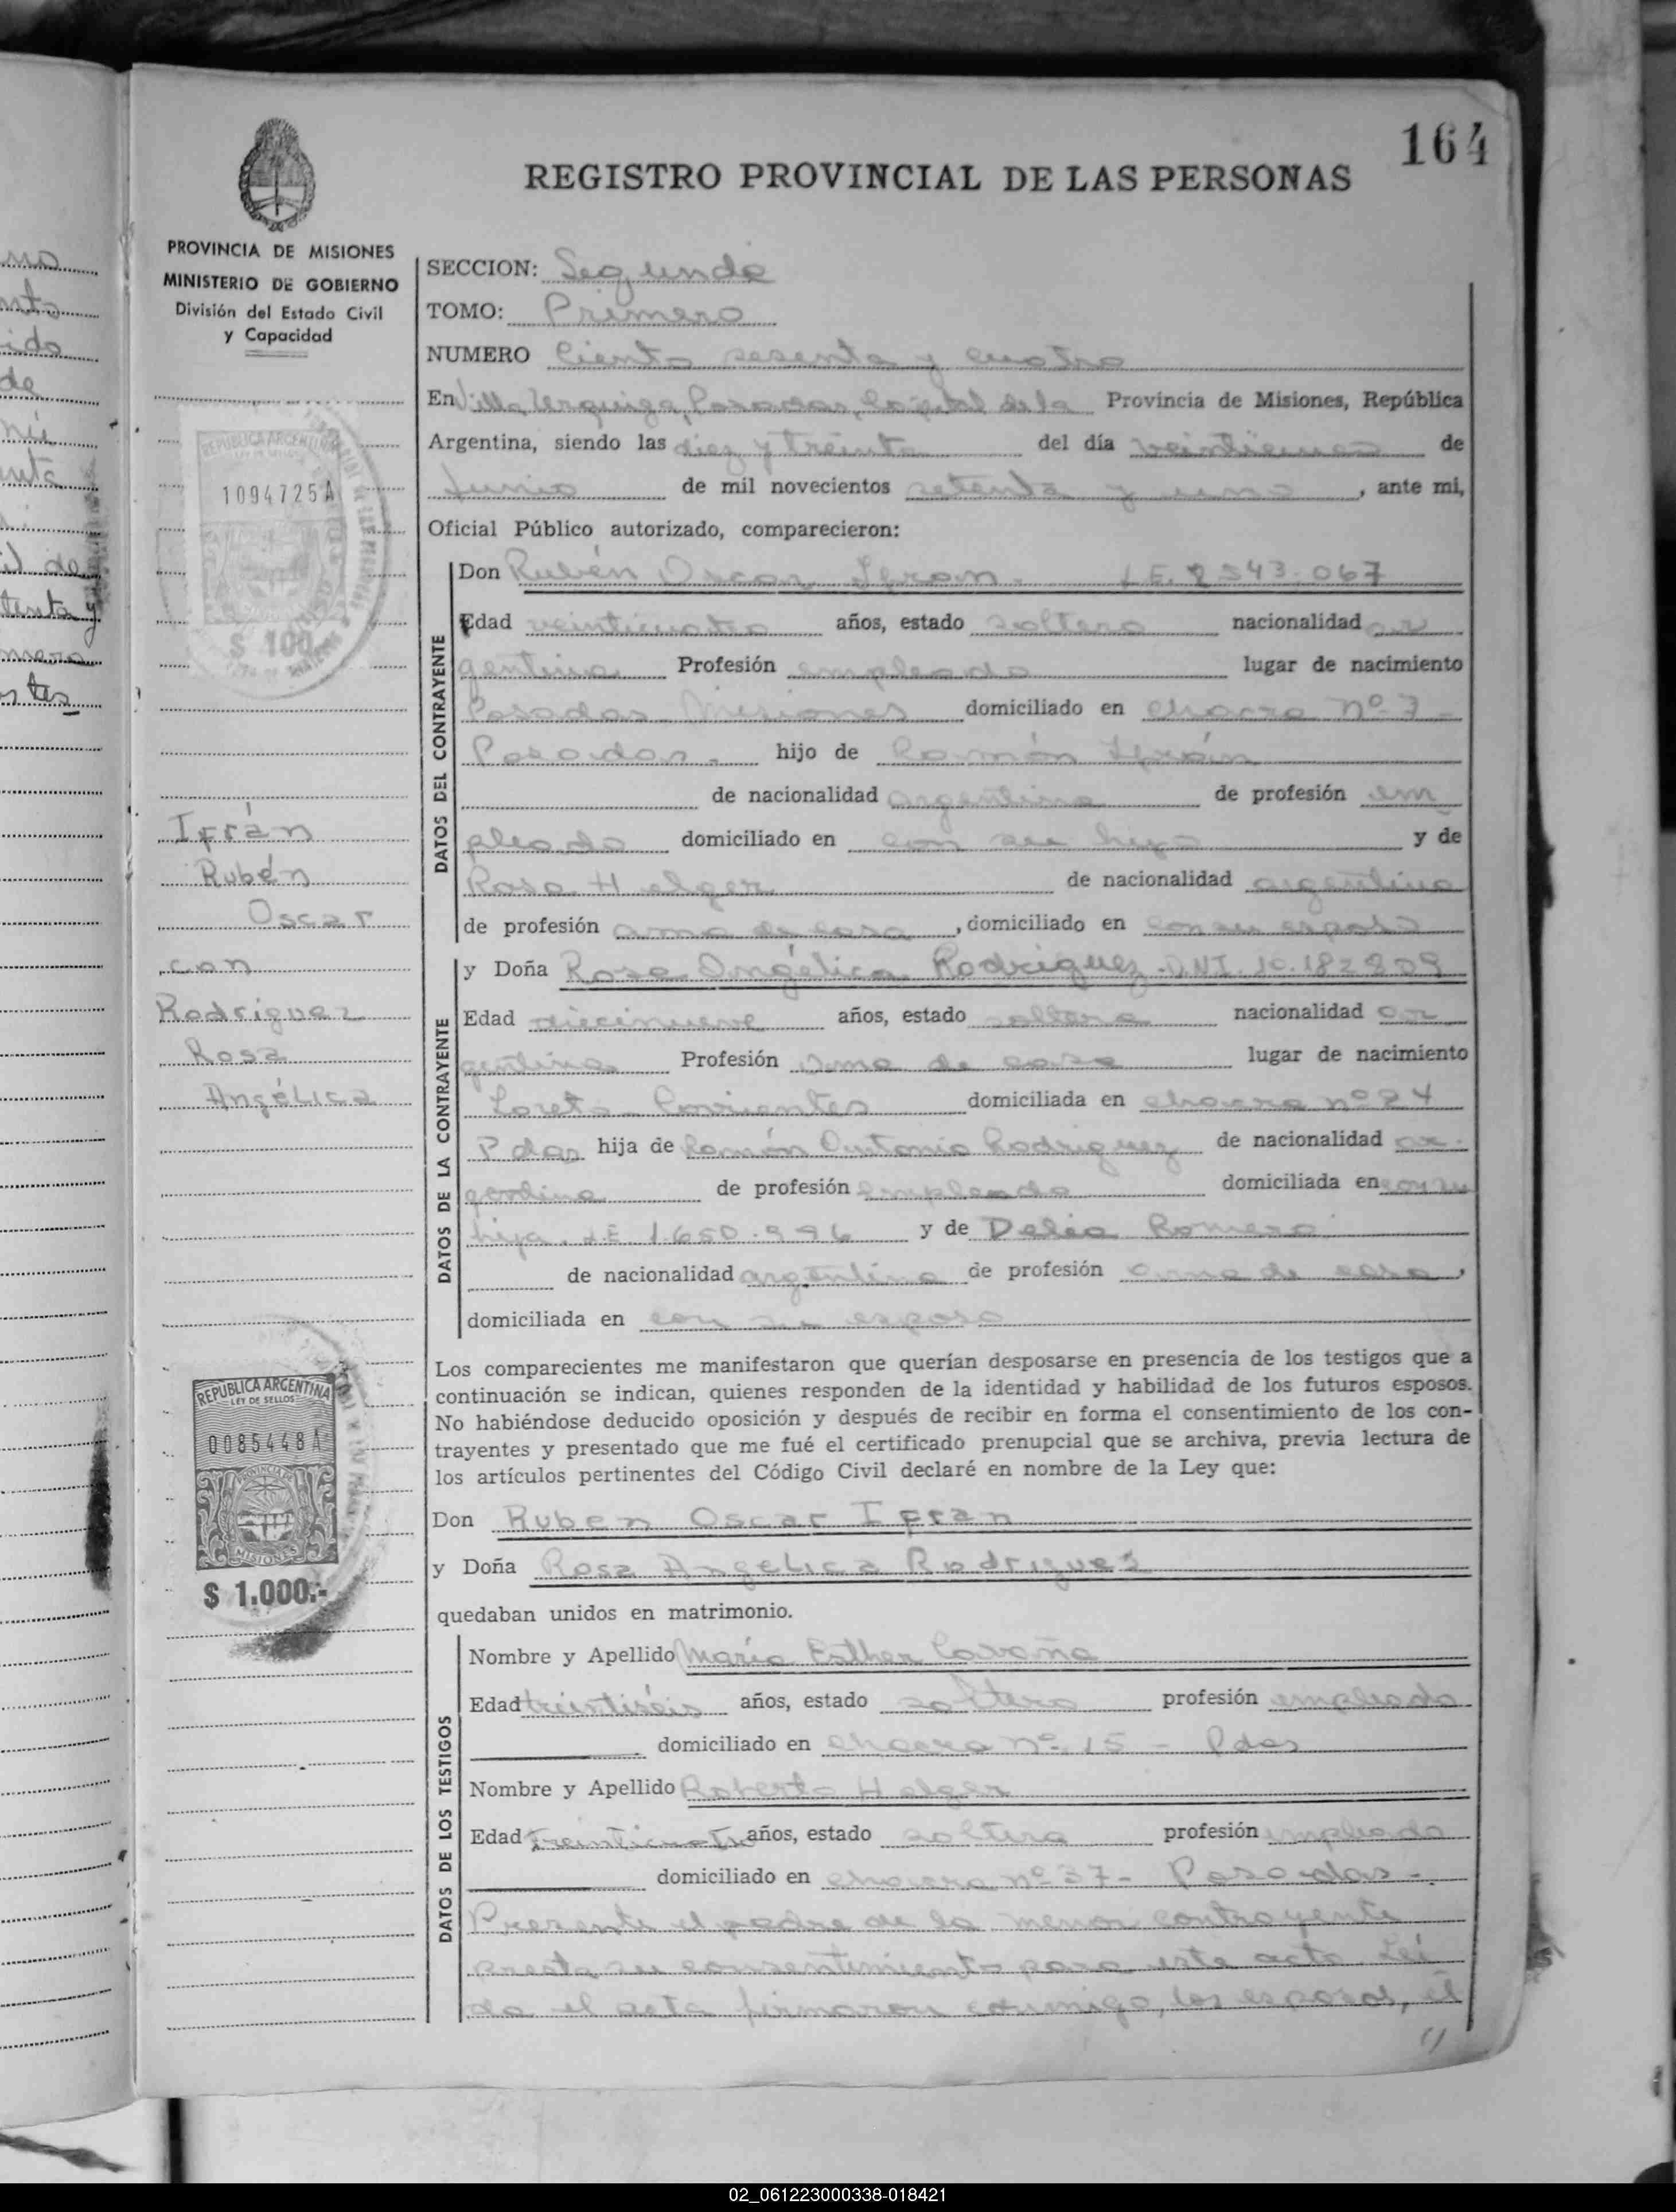 164
REGISTRO PROVINCIAL DE LAS PERSONAS
PROVINCIA DE MISIONES
MINISTERIO DE GOBIERNO
División del Estado Civil
y Capacidad
REPUBLICA ARGENTINA
1094725A
$ 100
Ifrán
Rubén
Oscar
con
Rodriguez
Rosa
Angélica
REPUBLICA ARGENTINA
LEY DE SELLOS
0085448A
PROVINCIA DE
MISIONES
$ 1.000.-
SECCION: Segunda
TOMO: Primero
NUMERO Ciento sesenta y cuatro
En Villa Urquiza, Posadas, Capital de la Provincia de Misiones, República
Argentina, siendo las diez y treinta del día de
Junio de mil novecientos setenta y uno, ante mi,
Oficial Público autorizado, comparecieron:
DATOS DEL CONTRAYENTE
Don Rubén Oscar Ifran. L.E. 8543.067
Edad veinticuatro años, estado soltero nacionalidad ar
gentina Profesión empleado lugar de nacimiento
Posadas Misiones domiciliado en chacra Nº 7-
Posadas. hijo de Ramón Ifrán
de nacionalidad argentina de profesión em
pleado domiciliado en con su hijo y de
Rosa Helger de nacionalidad argentina
de profesión ama de casa, domiciliado en con su esposo
DATOS DE LA CONTRAYENTE
y Doña Rosa Angélica Rodriguez. D.N.I. 10.182.909
Edad diecinueve años, estado soltera nacionalidad ar
gentina Profesión ama de casa lugar de nacimiento
Loreto - Corrientes domiciliada en chacra nº 24
Pdas hija de Ramón Antonio Rodriguez de nacionalidad ar-
gentina de profesión empleado domiciliada en con su
hija. L.E. 1.650.996 y de Delia Romero
de nacionalidad argentina de profesión ama de casa,
domiciliada en con su esposo
Los comparecientes me manifestaron que querían desposarse en presencia de los testigos que a
continuación se indican, quienes responden de la identidad y habilidad de los futuros esposos.
No habiéndose deducido oposición y después de recibir en forma el consentimiento de los con-
trayentes y presentado que me fué el certificado prenupcial que se archiva, previa lectura de
los artículos pertinentes del Código Civil declaré en nombre de la Ley que:
Don Ruben Oscar Ifran
y Doña Rosa Angelica Rodriguez
quedaban unidos en matrimonio.
DATOS DE LOS TESTIGOS
Nombre y Apellido María Esther
Edad treintiséis años, estado soltera profesión empleada
domiciliado en chacra nº 15 - Pdas
Nombre y Apellido Roberto Helger
Edad treinticuatro años, estado soltero profesión empleado
domiciliado en chacra nº 37- Posadas -.
Presente el padre de la menor contrayente
presta su consentimiento para este acto. Leí
da el acta firmaron conmigo, los esposos, el
02_061223000338-018421